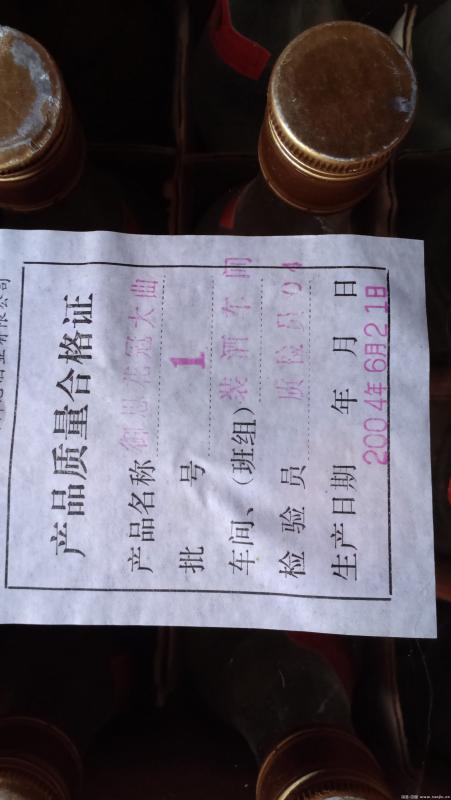 酒业有限公司
产品质量合格证
产品名称 御思花冠大曲
批号 1
车间、(班组) 装酒车间
检验员 质检员04
生产日期 年 月 日
2004年6月21日